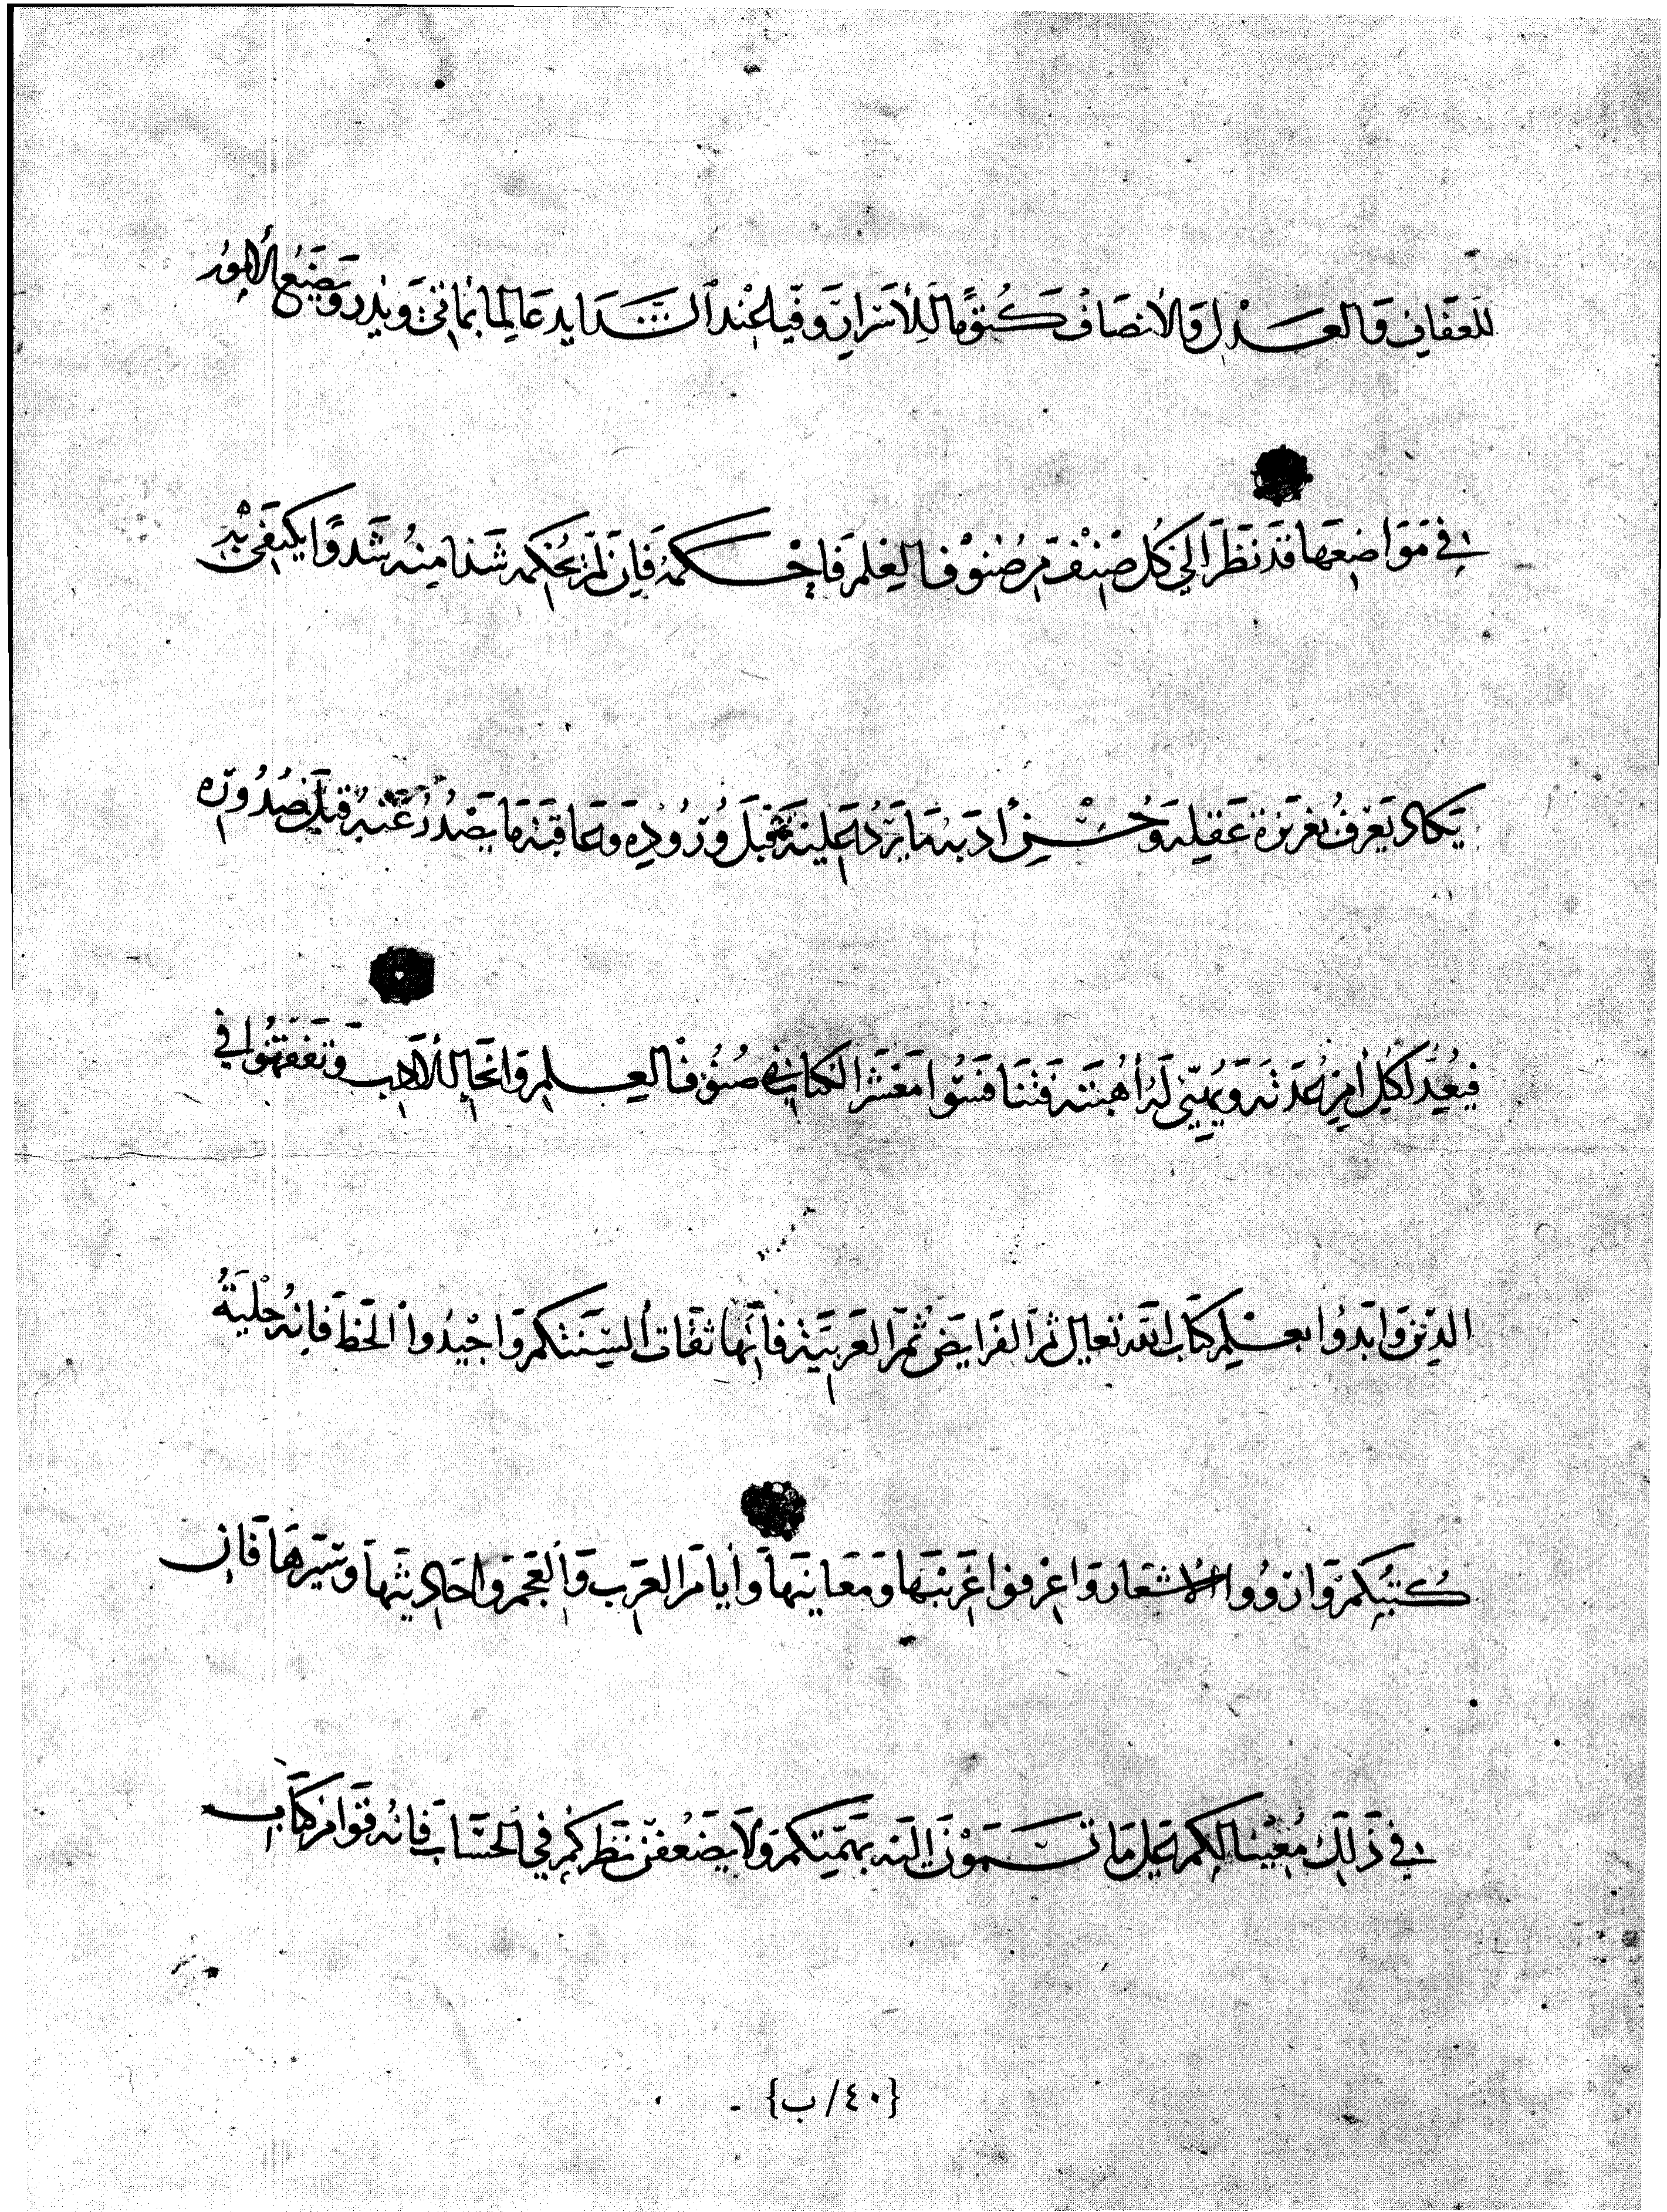 للعفاف والعدل والانصاف كتوما للأسرار وفيا عند الشدايد عالما بما ياتي ويذر ويضع الامور
في مواضعها قد نظر الي كل صنف من صنوف العلم فاحكمه فان لم يحكمه شدا منه شدوا يكتفي به
يكاد يعرف بغريزة عقله وحسن أدبه ما يرد عليه قبل وروده وعاقبة ما يصدر عنه قبل صدوره
فيعد لكل امر عدته ويهيئ له أهبته فتنافسوا معشر الكتاب في صنوف العلم وانحا الأدب وتفقهوا في
الدين وابدوا بعلم كتاب الله تعالى ثم الفرايض ثم العربية فانها ثقاف ألسنتكم واجيدوا الخط فانه حلية
كتبكم وارووا الاشعار واعرفوا غريبها ومعانيها وأيام العرب والعجم واحاديثها وسيرها فان
في ذلك معينا لكم علي ما تسمون اليه بهممكم ولا يضعفن نظركم في الحساب فانه قوام كتاب
{٤٠/ب}